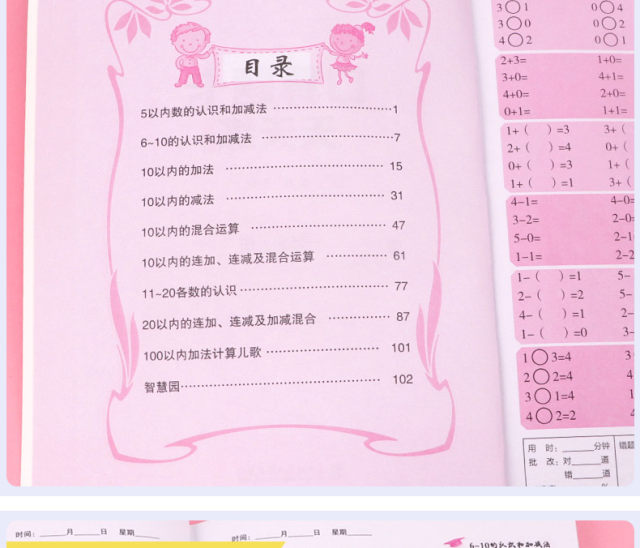 目录
5以内数的认识和加减法 1
6~10的认识和加减法 7
10以内的加法 15
10以内的减法 31
10以内的混合运算 47
10以内的连加、连减及混合运算 61
11~20各数的认识 77
20以内的连加、连减及加减混合 87
100以内加法计算儿歌 101
智慧园 102
3○1 0○4
3○0 0○2
4○2 0○1
2+3= 1+0=
3+0= 4+1=
4+0= 2+0=
0+1= 1+1=
1+( )=3 3+(
2+( )=4 0+(
0+( )=3 1+(
1+( )=1 3+(
4-1= 4-0=
3-2= 2-0=
5-0= 2-1
1-1= 2-2
1-( )=1 5-
2-( )=2 5-
4-( )=1 2-
1-( )=0 3-
1○3=4 3
2○2=4 4
3○1=4 1
4○2=2
用 时:______分钟 错题
批 改:对______道
错______道
时间:____月____日 星期____
时间:____月____日 星期____
6~10的认识和加减法